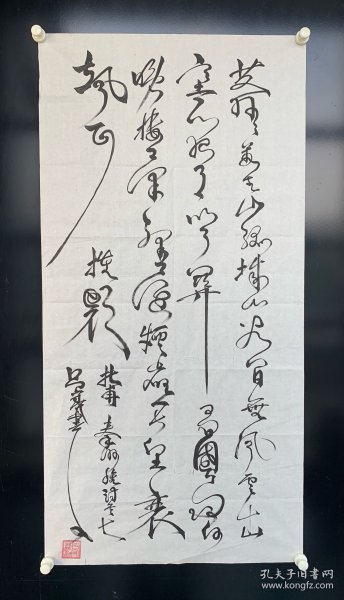 莽莽萬重山孤城山谷間無風雲出
塞不夜月臨關屬國歸何
晚樓蘭斬未還煙塵一長望衰
颯正摧顏
杜甫秦州雜詩之七
書
孔夫子旧书网
www.kongfz.com